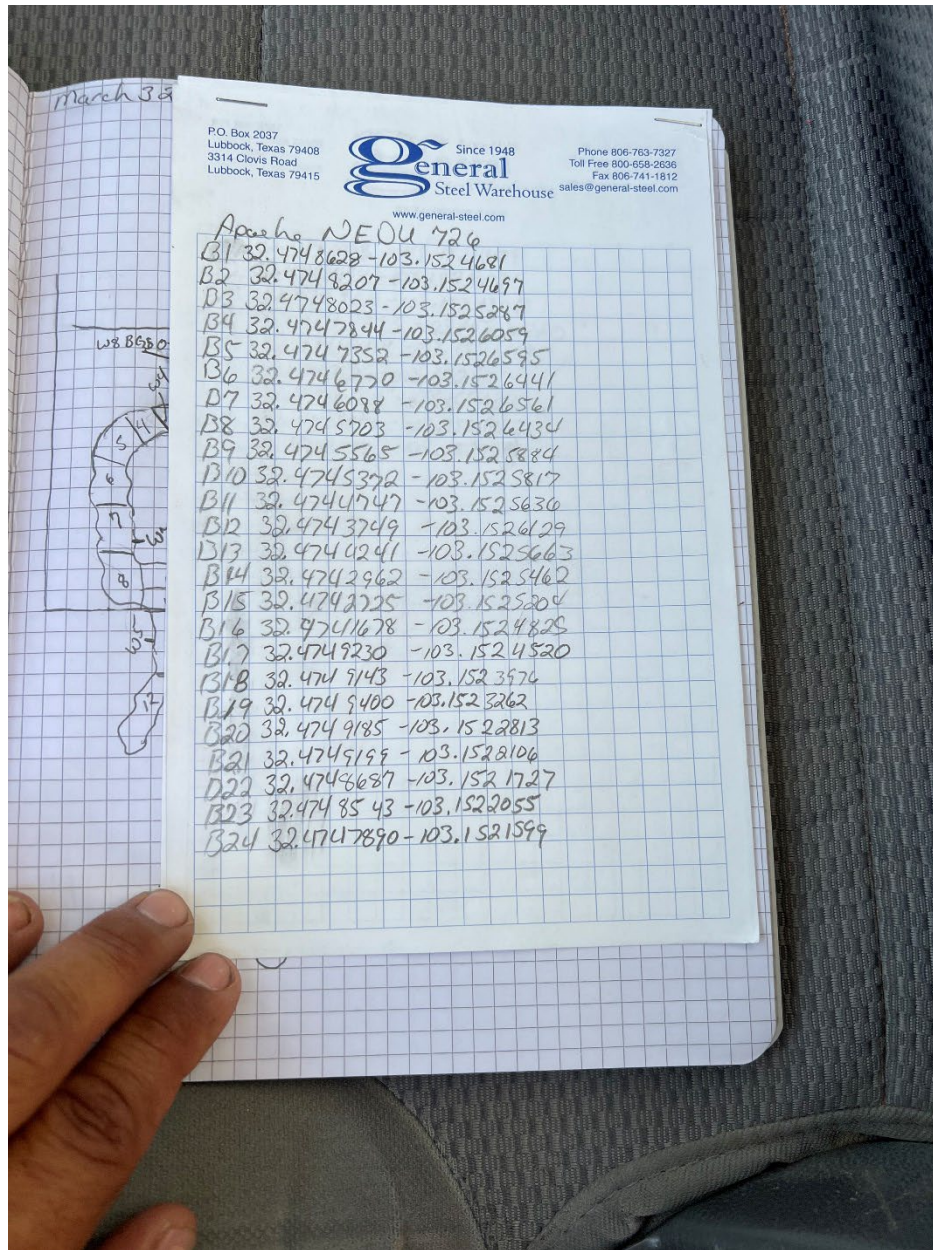 March 32
P.O. Box 2037
Lubbock, Texas 79408
3314 Clovis Road
Lubbock, Texas 79415
Since 1948
general
Steel Warehouse
Phone 806-763-7327
Toll Free 800-658-2636
Fax 806-741-1812
sales@general-steel.com
www.general-steel.com
Apache NEDU 726
B1 32.4748628 -103.1524681
B2 32.4748207 -103.1524697
B3 32.4748023 -103.1525287
B4 32.4747844 -103.1526059
B5 32.4747352 -103.1526595
B6 32.4746770 -103.1526441
B7 32.4746088 -103.1526561
B8 32.4745703 -103.1526434
B9 32.4745565 -103.1525884
B10 32.4745372 -103.1525817
B11 32.4744747 -103.1525636
B12 32.4743749 -103.1526129
B13 32.4744241 -103.1525663
B14 32.4742962 -103.1525462
B15 32.4742225 -103.1525204
B16 32.4741678 -103.1524825
B17 32.4749230 -103.1524520
B18 32.4749143 -103.1523976
B19 32.4749400 -103.1523262
B20 32.4749185 -103.1522813
B21 32.4749199 -103.1522106
B22 32.4748687 -103.1521727
B23 32.4748543 -103.1522055
B24 32.4747890 -103.1521599
4
5
6
7
8
W5
12